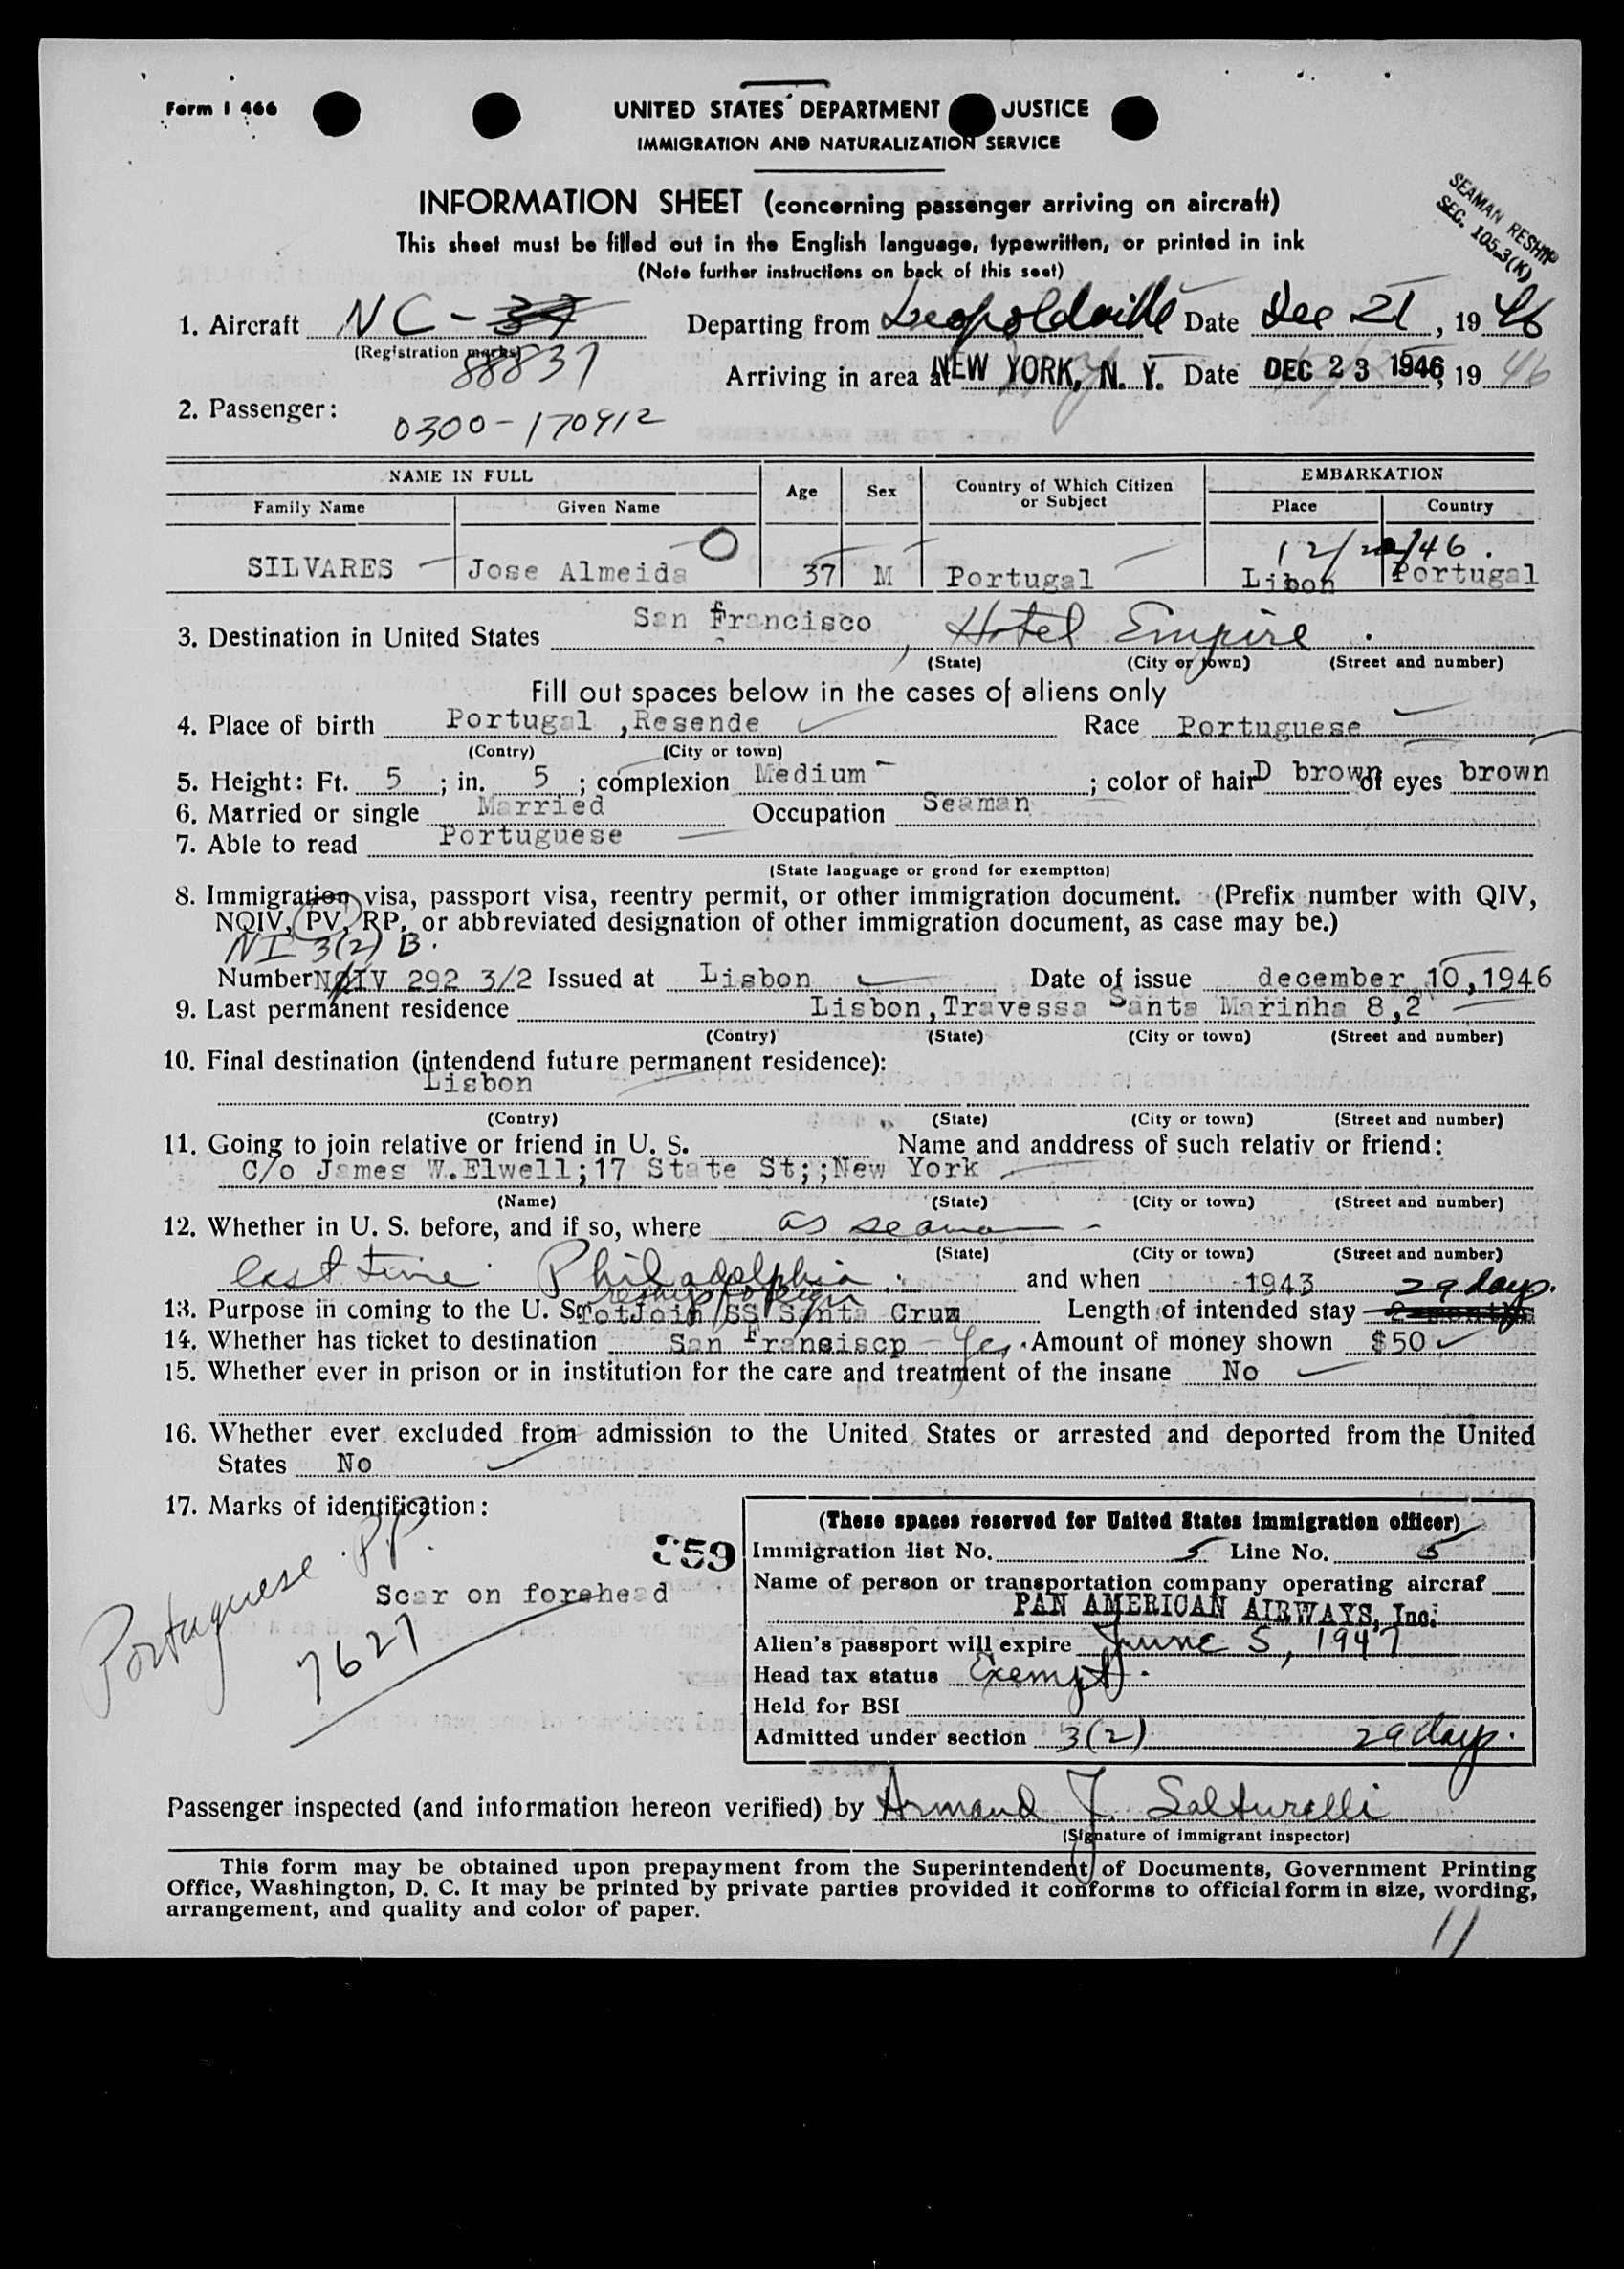 Form I 466
UNITED STATES DEPARTMENT JUSTICE
IMMIGRATION AND NATURALIZATION SERVICE
INFORMATION SHEET (concerning passenger arriving on aircraft)
SEAMAN RESHIP
SEC. 105.3(K)
This sheet must be filled out in the English language, typewritten, or printed in ink
(Note further instructions on back of this seet)
1. Aircraft NC- Departing from Leopoldville Date Dec 21, 1946
(Registration marks)
88837 Arriving in area at NEW YORK, N. Y. Date DEC 23 1946, 19 46
2. Passenger: 0300-170912
NAME IN FULL Age Sex Country of Which Citizen or Subject EMBARKATION
Family Name Given Name Place Country
12/ /46.
SILVARES Jose Almeida 37 M Portugal Libon Portugal
3. Destination in United States San francisco, Hotel Empire.
(State) (City or town) (Street and number)
Fill out spaces below in the cases of aliens only
4. Place of birth Portugal ,Resende Race Portuguese
(Contry) (City or town)
5. Height: Ft. 5 ; in. 5 ; complexion Medium ; color of hair D brown of eyes brown
6. Married or single Married Occupation Seaman
7. Able to read Portuguese
(State language or grond for exemption)
8. Immigration visa, passport visa, reentry permit, or other immigration document. (Prefix number with QIV,
NQIV, PV, RP, or abbreviated designation of other immigration document, as case may be.)
NI 3(2) B.
Number NQIV 292 3/2 Issued at Lisbon Date of issue december 10,1946
9. Last permanent residence Lisbon,Travessa Santa Marinha 8,2
(Contry) (State) (City or town) (Street and number)
10. Final destination (intendend future permanent residence):
Lisbon
(Contry) (State) (City or town) (Street and number)
11. Going to join relative or friend in U. S. Name and anddress of such relativ or friend:
C/o James W.Elwell;17 State St;;New York
(Name) (State) (City or town) (Street and number)
12. Whether in U. S. before, and if so, where as seaman
(State) (City or town) (Street and number)
last time Philadelphia. and when 1943 29 days.
reship foreign
13. Purpose in coming to the U. S. TotJoin SS Santa Cruz Length of intended stay 2 months
14. Whether has ticket to destination San Franciscp - Yes. Amount of money shown $50
15. Whether ever in prison or in institution for the care and treatment of the insane No
16. Whether ever excluded from admission to the United States or arrested and deported from the United
States No
17. Marks of identification:
Portuguese P.P.
7627
Scar on forehead
359
(These spaces reserved for United States immigration officer)
Immigration list No. 5 Line No. 5
Name of person or transportation company operating aircraf
PAN AMERICAN AIRWAYS, Inc.
Alien's passport will expire June 5, 1947
Head tax status Exempt.
Held for BSI
Admitted under section 3(2) 29 days.
Passenger inspected (and information hereon verified) by Armand J. Salturelli
(Signature of immigrant inspector)
This form may be obtained upon prepayment from the Superintendent of Documents, Government Printing
Office, Washington, D. C. It may be printed by private parties provided it conforms to official form in size, wording,
arrangement, and quality and color of paper.
11